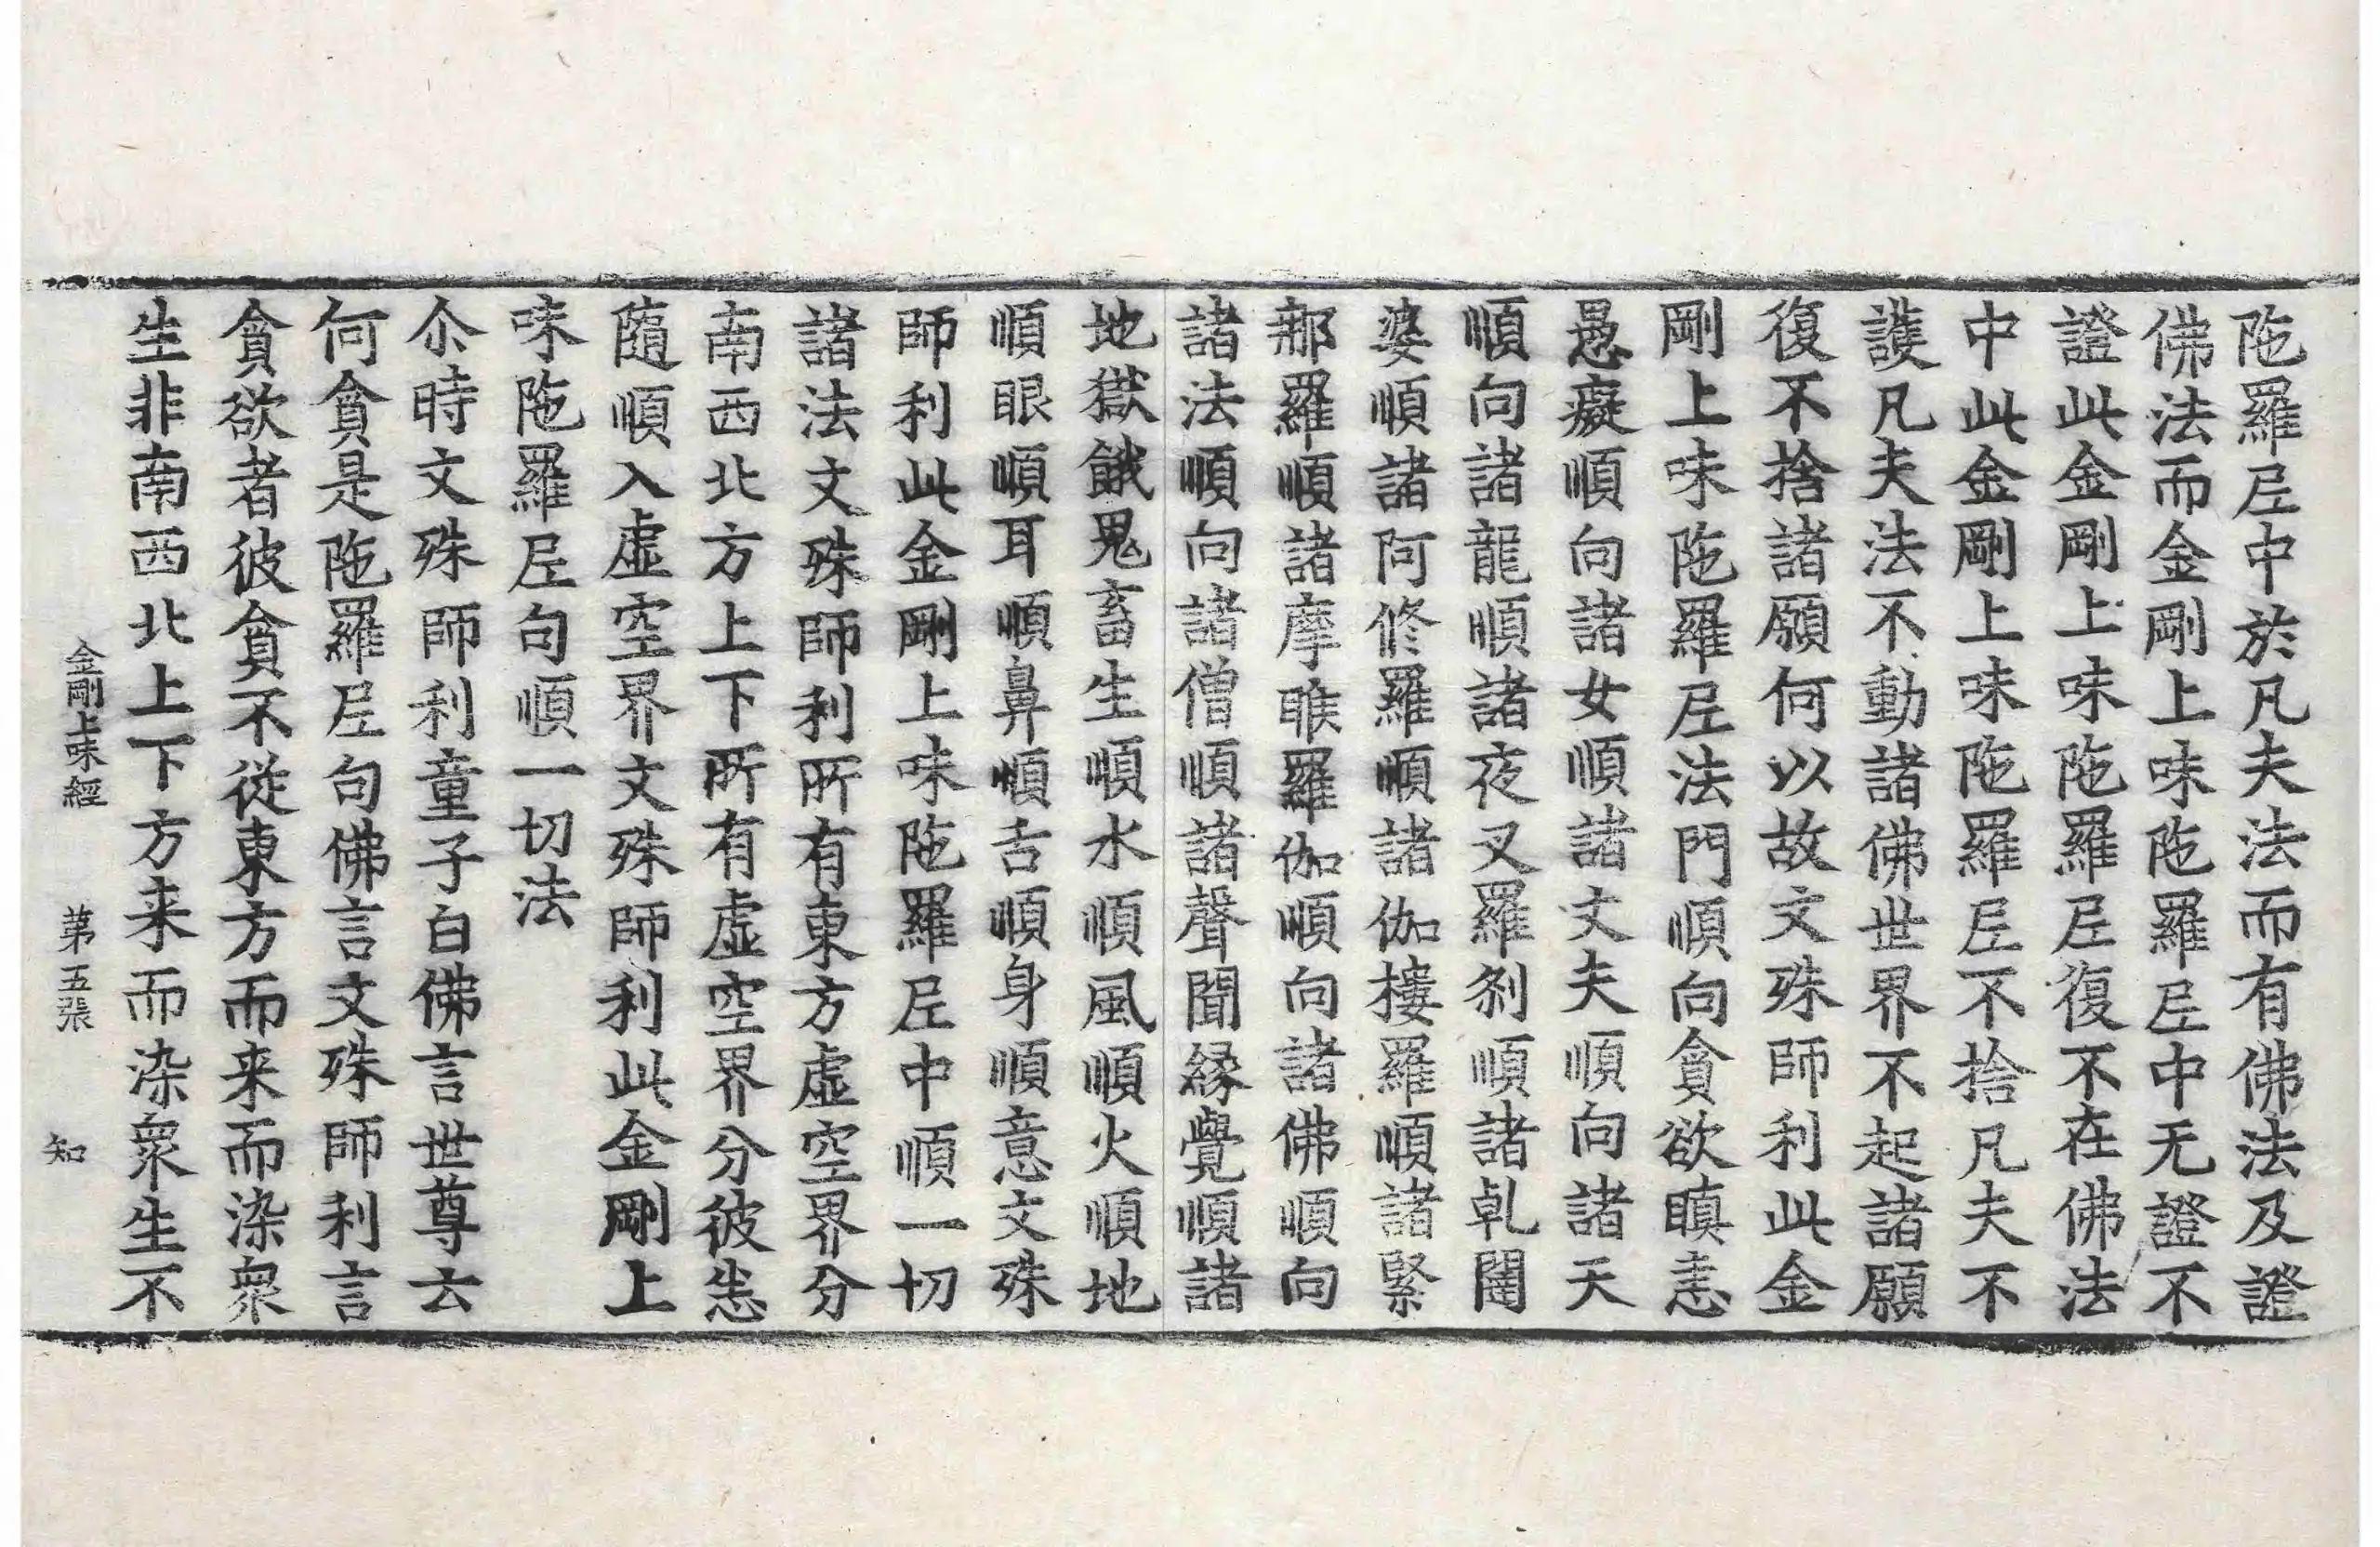 陁羅𡰱中於凡夫法而有佛法及證
佛法而金剛上味陁羅𡰱中无證不
證此金剛上味陁羅𡰱復不在佛法
中此金剛上味陁羅𡰱不捨凡夫不
護凡夫法不動諸佛世界不起諸願
復不捨諸願何以故文殊師利此金
剛上味陁羅𡰱法門順向貪欲瞋恚
愚癡順向諸女順諸丈夫順向諸天
順向諸龍順諸夜叉羅剎順諸乹闥
婆順諸阿修羅順諸伽樓羅順諸緊
那羅順諸摩睺羅伽順向諸佛順向
諸法順向諸僧順諸聲聞緣覺順諸
地獄餓鬼畜生順水順風順火順地
順眼順耳順鼻順舌順身順意文殊
師利此金剛上味陁羅𡰱中順一切
諸法文殊師利所有東方虛空界分
南西北方上下所有虛空界分彼恙
隨順入虛空界文殊師利此金剛上
味陁羅𡰱句順一切法
尒時文殊師利童子白佛言世尊云
何貪是陁羅𡰱句佛言文殊師利言
貪欲者彼貪不從東方而来而染衆
生非南西北上下方来而染衆生不
金剛上味經 苐五張 知